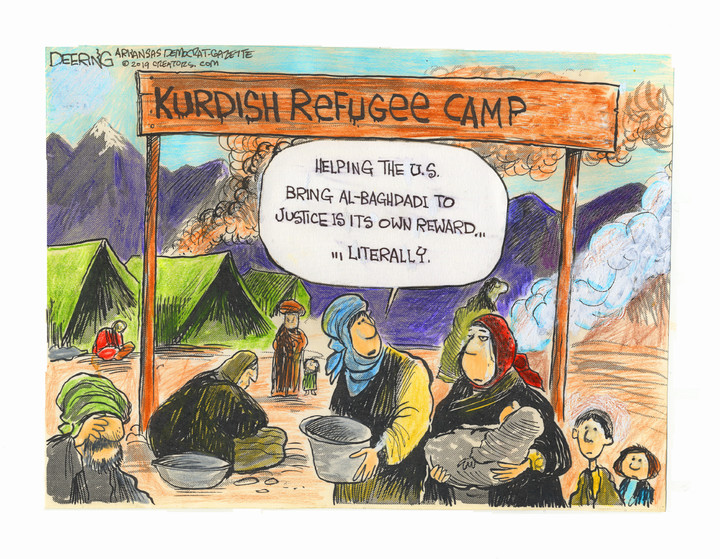 DEERING ARKANSAS DEMOCRAT-GAZETTE
© 2019 CREATORS.COM
KURDISH REFUGEE CAMP
HELPING THE U.S.
BRING AL-BAGHDADI TO
JUSTICE IS ITS OWN REWARD...
... LITERALLY.